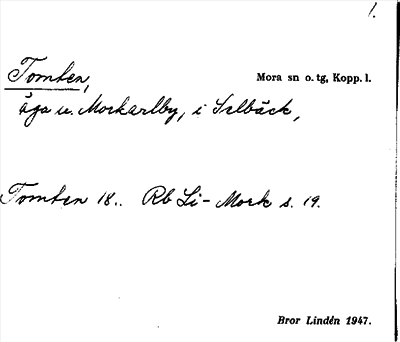 1.
Tomten,
Mora sn o. tg, Kopp. l.
äga u. Morkarlby, i Selbäck,
Tomten 18.. Rb Li - Mork s. 19.
Bror Lindén 1947.